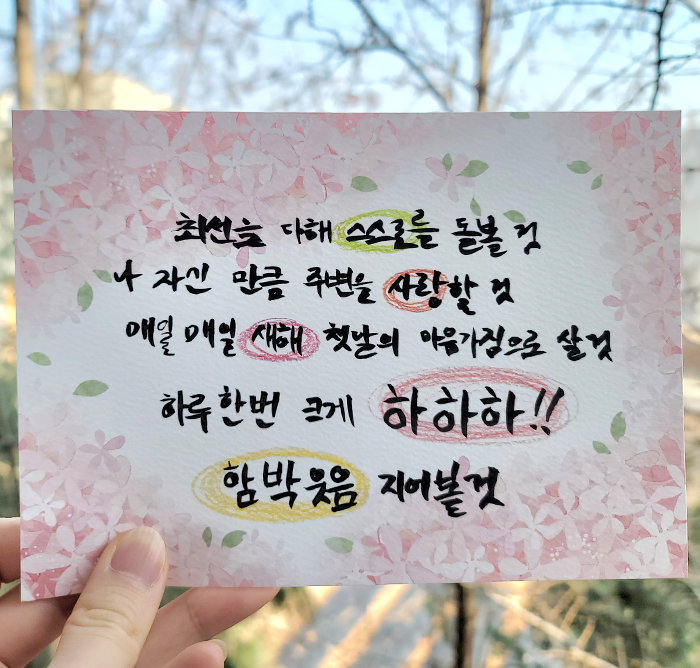 최선을 다해 스스로를 돌볼 것
나 자신 만큼 주변을 사랑할 것
매일매일 새해 첫날의 마음가짐으로 살 것
하루 한번 크게 하하하!!
함박웃음 지어볼 것